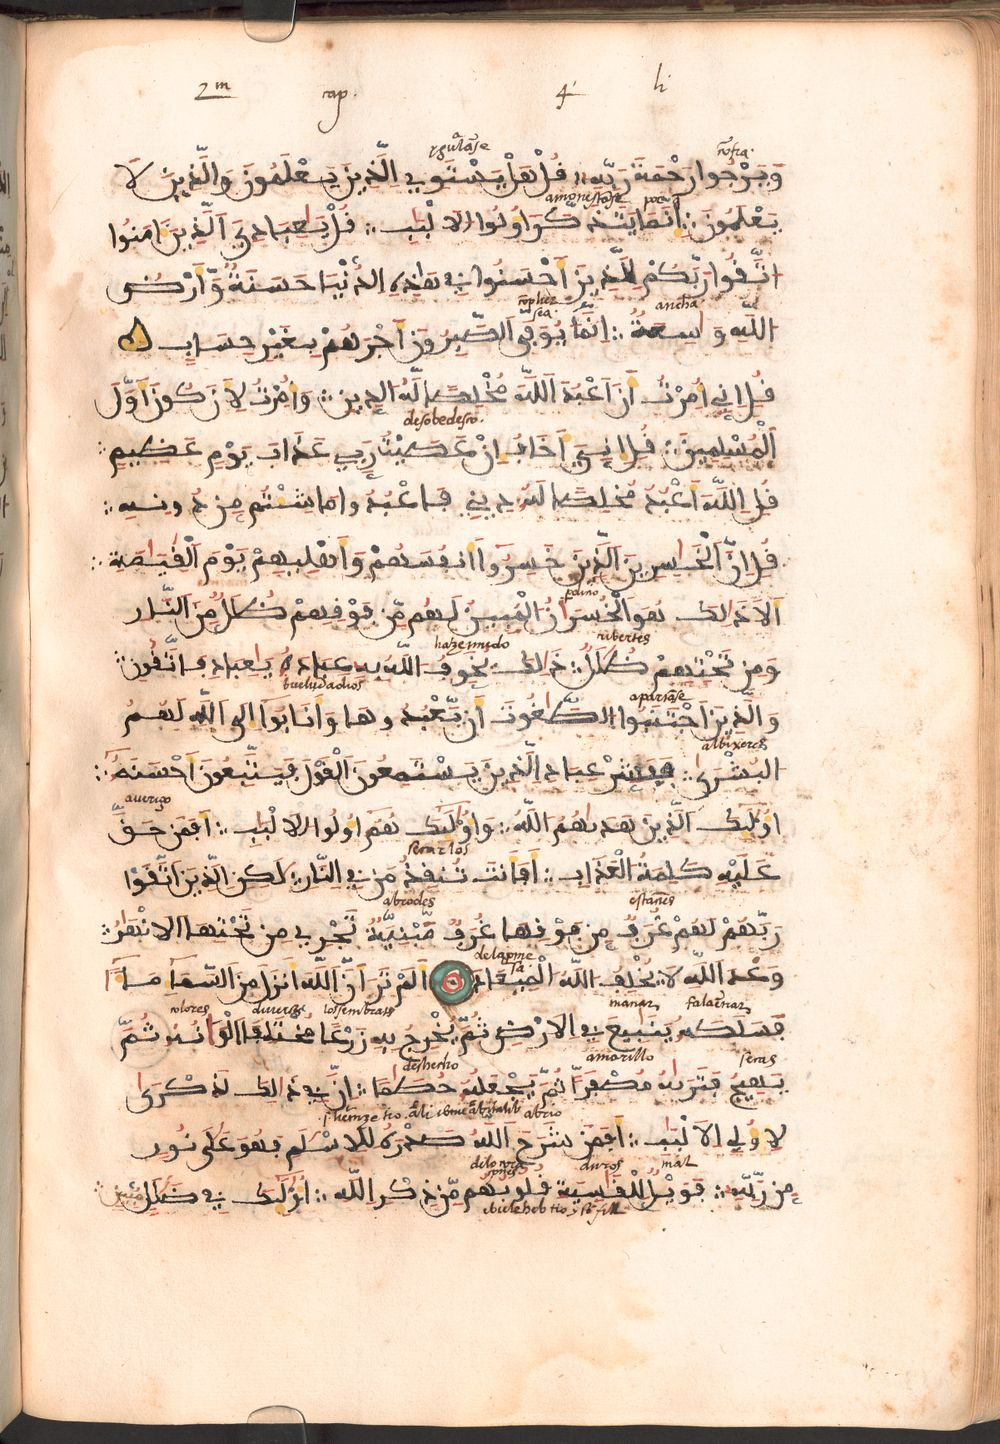 2m cap. 4 li
وَيَرْجُوا رَحْمَةَ رَبِّهِ قُلْ هَلْ يَسْتَوِي الَّذِينَ يَعْلَمُونَ وَالَّذِينَ لَا
amonestase
يَعْلَمُونَ إِنَّمَا يَتَذَكَّرُ أُولُوا الْأَلْبَٰبِ قُلْ يَٰعِبَادِيَ الَّذِينَ ءَامَنُوا
اتَّقُوا رَبَّكُمْ لِلَّذِينَ أَحْسَنُوا فِي هَٰذِهِ الدُّنْيَا حَسَنَةٌ وَّأَرْضُ
ancha
sea
اللَّهِ وَٰسِعَةٌ إِنَّمَا يُوَفَّى الصَّٰبِرُونَ أَجْرَهُمْ بِغَيْرِ حِسَابٍ
قُلْ إِنِّي أُمِرْتُ أَنْ أَعْبُدَ اللَّهَ مُخْلِصًا لَّهُ الدِّينَ وَأُمِرْتُ لِأَنْ أَكُونَ أَوَّلَ
desobedesco.
الْمُسْلِمِينَ قُلْ إِنِّيَ أَخَافُ إِنْ عَصَيْتُ رَبِّي عَذَابَ يَوْمٍ عَظِيمٍ
قُلِ اللَّهَ أَعْبُدُ مُخْلِصًا لَّهُ دِينِي فَاعْبُدُوا مَا شِئْتُم مِّن دُونِهِ
قُلْ إِنَّ الْخَٰسِرِينَ الَّذِينَ خَسِرُوا أَنفُسَهُمْ وَأَهْلِيهِمْ يَوْمَ الْقِيَٰمَةِ
أَلَا ذَٰلِكَ هُوَ الْخُسْرَانُ الْمُبِينُ لَهُم مِّن فَوْقِهِمْ ظُلَلٌ مِّنَ النَّارِ
haze miedo
وَمِن تَحْتِهِمْ ظُلَلٌ ذَٰلِكَ يُخَوِّفُ اللَّهُ بِهِ عِبَادَهُ يَٰعِبَادِ فَاتَّقُونِ
apartase
وَالَّذِينَ اجْتَنَبُوا الطَّٰغُوتَ أَن يَّعْبُدُوهَا وَأَنَابُوا إِلَى اللَّهِ لَهُمُ
albixeres
الْبُشْرَىٰ فَبَشِّرْ عِبَادِ الَّذِينَ يَسْتَمِعُونَ الْقَوْلَ فَيَتَّبِعُونَ أَحْسَنَهُ
averigo
أُولَٰئِكَ الَّذِينَ هَدَىٰهُمُ اللَّهُ وَأُولَٰئِكَ هُمْ أُولُوا الْأَلْبَٰبِ أَفَمَنْ حَقَّ
عَلَيْهِ كَلِمَةُ الْعَذَابِ أَفَأَنتَ تُنقِذُ مَن فِي النَّارِ لَٰكِنِ الَّذِينَ اتَّقَوْا
رَبَّهُمْ لَهُمْ غُرَفٌ مِّن فَوْقِهَا غُرَفٌ مَّبْنِيَّةٌ تَجْرِي مِن تَحْتِهَا الْأَنْهَٰرُ
وَعْدَ اللَّهِ لَا يُخْلِفُ اللَّهُ الْمِيعَادَ أَلَمْ تَرَ أَنَّ اللَّهَ أَنزَلَ مِنَ السَّمَاءِ مَاءً
colores manar
فَسَلَكَهُ يَنَٰبِيعَ فِي الْأَرْضِ ثُمَّ يُخْرِجُ بِهِ زَرْعًا مُّخْتَلِفًا أَلْوَٰنُهُ ثُمَّ
deshecho amarillo
يَهِيجُ فَتَرَىٰهُ مُصْفَرًّا ثُمَّ يَجْعَلُهُ حُطَٰمًا إِنَّ فِي ذَٰلِكَ لَذِكْرَىٰ
abrio
لِأُولِي الْأَلْبَٰبِ أَفَمَن شَرَحَ اللَّهُ صَدْرَهُ لِلْإِسْلَٰمِ فَهُوَ عَلَىٰ نُورٍ
duros mal
مِّن رَّبِّهِ فَوَيْلٌ لِّلْقَٰسِيَةِ قُلُوبُهُم مِّن ذِكْرِ اللَّهِ أُولَٰئِكَ فِي ضَلَٰلٍ مُّبِينٍ